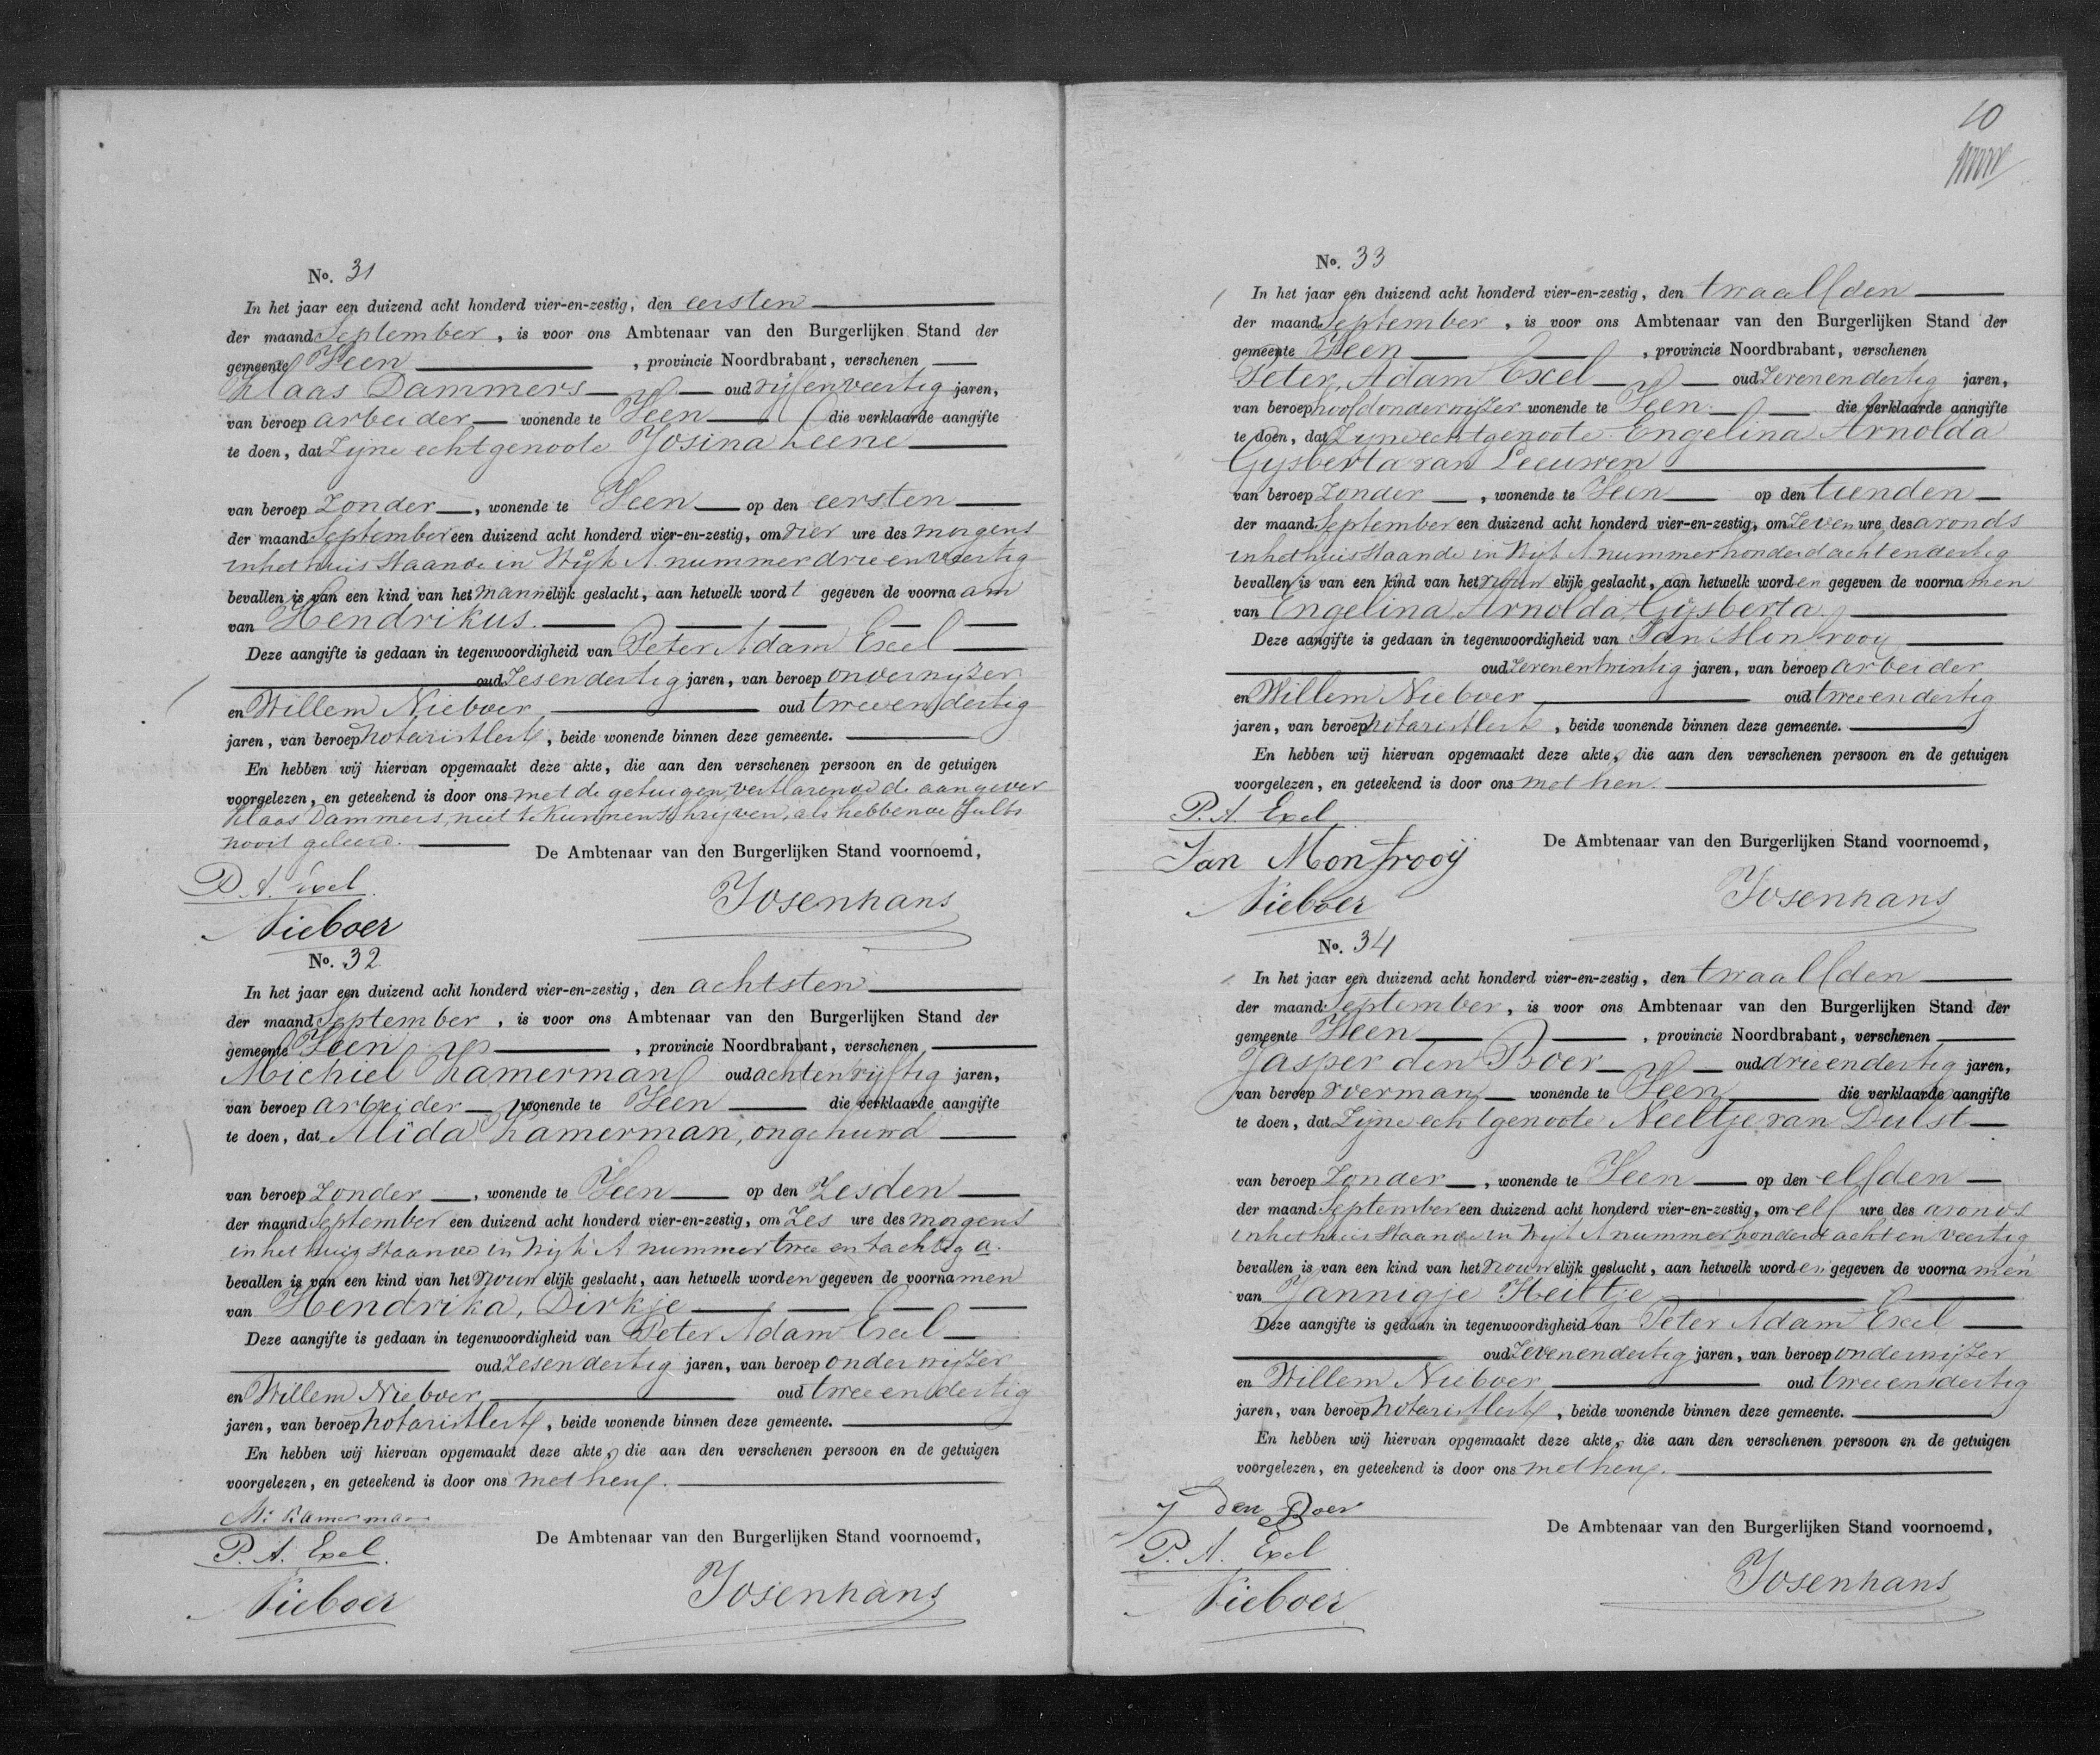 No. 31
In het jaar een duizend acht honderd vier-en-zestig, den eersten
der maand September, is voor ons Ambtenaar van den Burgerlijken Stand der
gemeente Veen, provincie Noordbrabant, verschenen
Klaas Dammers oud vijfenveertig jaren,
van beroep arbeider wonende te Veen die verklaarde aangifte
te doen, dat Zijne echtgenoote Josina Leene
van beroep Zonder, wonende te Veen op den eersten
der maand September een duizend acht honderd vier-en-zestig, om vier ure des morgens
in het huis staande in Wijk A nummer drie en veertig
bevallen is van een kind van het mannelijk geslacht, aan hetwelk wordt gegeven de voornaam
van Hendrikus.
Deze aangifte is gedaan in tegenwoordigheid van Peter Adam Exel
oud Zesendertig jaren, van beroep onderwijzer
en Willem Nieboer oud tweeendertig
jaren, van beroep notarisklerk, beide wonende binnen deze gemeente.
En hebben wij hiervan opgemaakt deze akte, die aan den verschenen persoon en de getuigen
voorgelezen, en geteekend is door ons met de getuigen, verklarende de aangever
Klaas Dammers, niet te kunnen schrijven, als hebbende zulks
nooit geleerd.
De Ambtenaar van den Burgerlijken Stand voornoemd,
P. A. Exel
Josenhans
Nieboer
No. 32
In het jaar een duizend acht honderd vier-en-zestig, den achtsten
der maand September, is voor ons Ambtenaar van den Burgerlijken Stand der
gemeente Veen, provincie Noordbrabant, verschenen
Michiel Kamerman oud achtenvijftig jaren,
van beroep arbeider wonende te Veen die verklaarde aangifte
te doen, dat Alida Kamerman, ongehuwd
van beroep Zonder, wonende te Veen op den Zesden
der maand September een duizend acht honderd vier-en-zestig, om Zes ure des morgens
in het huis staande in Wijk A nummer twee en tachtig a.
bevallen is van een kind van het vrouwelijk geslacht, aan hetwelk worden gegeven de voornamen
van Hendrika, Dirkje
Deze aangifte is gedaan in tegenwoordigheid van Peter Adam Exel
oud Zesendertig jaren, van beroep onderwijzer
en Willem Nieboer oud tweeendertig
jaren, van beroep notarisklerk, beide wonende binnen deze gemeente.
En hebben wij hiervan opgemaakt deze akte, die aan den verschenen persoon en de getuigen
voorgelezen, en geteekend is door ons met hen.
M: Kamerman
De Ambtenaar van den Burgerlijken Stand voornoemd,
P. A. Exel.
Josenhans
Nieboer
10
No. 33
In het jaar een duizend acht honderd vier-en-zestig, den twaalfden
der maand September, is voor ons Ambtenaar van den Burgerlijken Stand der
gemeente Veen, provincie Noordbrabant, verschenen
Peter, Adam Exel oud Zevenendertig jaren,
van beroep hoofdonderwijzer wonende te Veen die verklaarde aangifte
te doen, dat Zijne echtgenoote Engelina Arnolda
Gijsberta van Leeuwen
van beroep Zonder, wonende te Veen op den tienden
der maand September een duizend acht honderd vier-en-zestig, om Zeven ure des avonds
in het huis staande in Wijk A nummer honderdachtendertig
bevallen is van een kind van het vrouwelijk geslacht, aan hetwelk worden gegeven de voornamen
van Engelina, Arnolda, Gijsberta
Deze aangifte is gedaan in tegenwoordigheid van Jan Monfrooy
oud Zevenentwintig jaren, van beroep arbeider
en Willem Nieboer oud tweeendertig
jaren, van beroep notarisklerk, beide wonende binnen deze gemeente.
En hebben wij hiervan opgemaakt deze akte, die aan den verschenen persoon en de getuigen
voorgelezen, en geteekend is door ons met hen.
P. A. Exel
De Ambtenaar van den Burgerlijken Stand voornoemd,
Jan Monfrooij
Josenhans
Nieboer
No. 34
In het jaar een duizend acht honderd vier-en-zestig, den twaalfden
der maand September, is voor ons Ambtenaar van den Burgerlijken Stand der
gemeente Veen, provincie Noordbrabant, verschenen
Jasper den Boer oud drieendertig jaren,
van beroep voerman wonende te Veen die verklaarde aangifte
te doen, dat Zijne echtgenoote Neeltje van Dulst
van beroep Zonder, wonende te Veen op den elfden
der maand September een duizend acht honderd vier-en-zestig, om elf ure des avonds
in het huis staande in Wijk A nummer honderd achtenveertig
bevallen is van een kind van het vrouwelijk geslacht, aan hetwelk worden gegeven de voornamen
van Jannigje Heiltje
Deze aangifte is gedaan in tegenwoordigheid van Peter Adam Exel
oud Zevenendertig jaren, van beroep onderwijzer
en Willem Nieboer oud tweeendertig
jaren, van beroep notarisklerk, beide wonende binnen deze gemeente.
En hebben wij hiervan opgemaakt deze akte, die aan den verschenen persoon en de getuigen
voorgelezen, en geteekend is door ons met hen.
J den Boer
De Ambtenaar van den Burgerlijken Stand voornoemd,
P. A. Exel
Josenhans
Nieboer